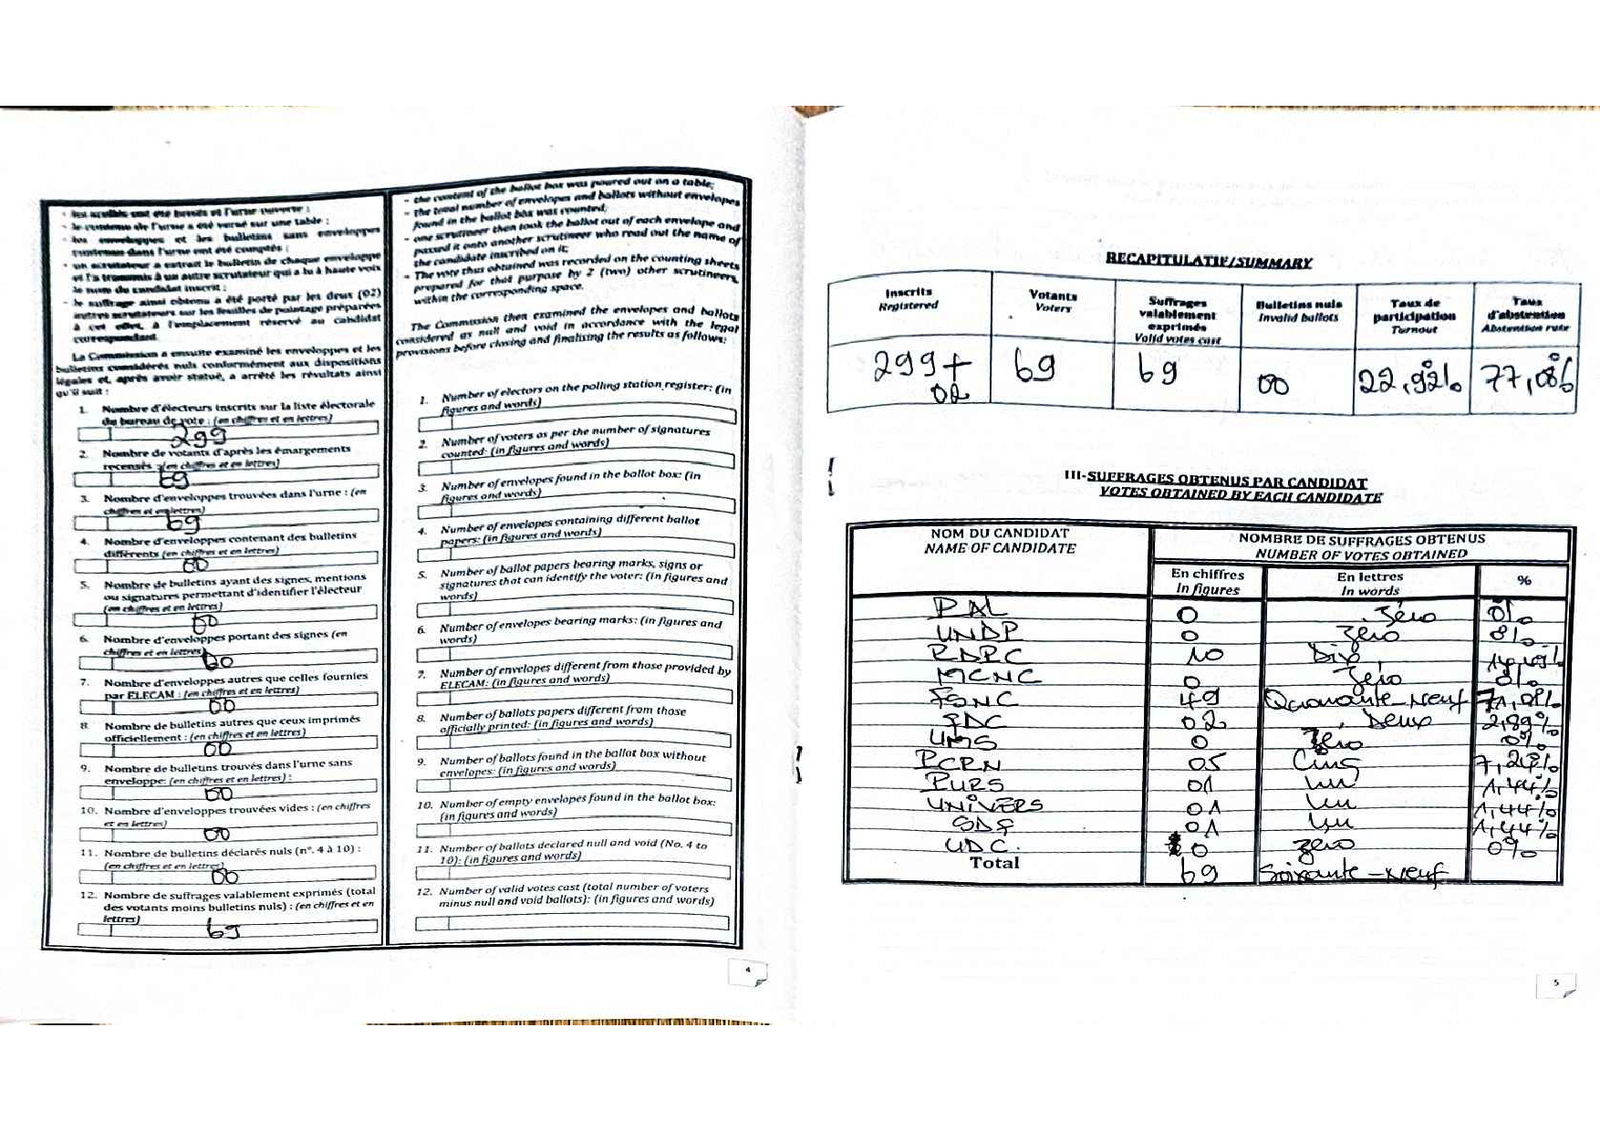 - les scellés ont été brisés et l'urne ouverte ;
- le contenu de l'urne a été versé sur une table ;
- les enveloppes et les bulletins sans enveloppes
contenus dans l'urne ont été comptés ;
- un scrutateur a extrait le bulletin de chaque enveloppe
et l'a transmis à un autre scrutateur qui a lu à haute voix
le nom du candidat inscrit ;
- le suffrage ainsi obtenu a été porté par les deux (02)
autres scrutateurs sur les feuilles de pointage préparées
à cet effet, à l'emplacement réservé au candidat
correspondant.
La Commission a ensuite examiné les enveloppes et les
bulletins considérés nuls conformément aux dispositions
légales et, après avoir statué, a arrêté les résultats ainsi
qu'il suit :
1. Nombre d'électeurs inscrits sur la liste électorale
du bureau de vote : (en chiffres et en lettres)
299
2. Nombre de votants d'après les émargements
recensés : (en chiffres et en lettres)
69
3. Nombre d'enveloppes trouvées dans l'urne : (en
chiffres et en lettres)
69
4. Nombre d'enveloppes contenant des bulletins
différents (en chiffres et en lettres)
00
5. Nombre de bulletins ayant des signes, mentions
ou signatures permettant d'identifier l'électeur
(en chiffres et en lettres)
00
6. Nombre d'enveloppes portant des signes (en
chiffres et en lettres)
00
7. Nombre d'enveloppes autres que celles fournies
par ELECAM : (en chiffres et en lettres)
00
8. Nombre de bulletins autres que ceux imprimés
officiellement : (en chiffres et en lettres)
00
9. Nombre de bulletins trouvés dans l'urne sans
enveloppe: (en chiffres et en lettres) :
00
10. Nombre d'enveloppes trouvées vides : (en chiffres
et en lettres)
00
11. Nombre de bulletins déclarés nuls (n°. 4 à 10) :
(en chiffres et en lettres)
00
12. Nombre de suffrages valablement exprimés (total
des votants moins bulletins nuls) : (en chiffres et en
lettres)
69
- the content of the ballot box was poured out on a table;
- the total number of envelopes and ballots without envelopes
found in the ballot box was counted;
- one scrutineer then took the ballot out of each envelope and
passed it onto another scrutineer who read out the name of
the candidate inscribed on it;
- The vote thus obtained was recorded on the counting sheets
prepared for that purpose by 2 (two) other scrutineers,
within the corresponding space.
The Commission then examined the envelopes and ballots
considered as null and void in accordance with the legal
provisions before closing and finalising the results as follows:
1. Number of electors on the polling station register: (in
figures and words)
2. Number of voters as per the number of signatures
counted: (in figures and words)
3. Number of envelopes found in the ballot box: (in
figures and words)
4. Number of envelopes containing different ballot
papers: (in figures and words)
5. Number of ballot papers bearing marks, signs or
signatures that can identify the voter: (in figures and
words)
6. Number of envelopes bearing marks: (in figures and
words)
7. Number of envelopes different from those provided by
ELECAM: (in figures and words)
8. Number of ballots papers different from those
officially printed: (in figures and words)
9. Number of ballots found in the ballot box without
envelopes: (in figures and words)
10. Number of empty envelopes found in the ballot box:
(in figures and words)
11. Number of ballots declared null and void (No. 4 to
10): (in figures and words)
12. Number of valid votes cast (total number of voters
minus null and void ballots): (in figures and words)
4
RECAPITULATIF/SUMMARY
Inscrits Registered Votants Voters Suffrages valablement exprimés Valid votes cast Bulletins nuls Invalid ballots Taux de participation Turnout Taux d'abstention Abstention rate
299 + 02 69 69 00 22,92% 77,08%
III-SUFFRAGES OBTENUS PAR CANDIDAT
VOTES OBTAINED BY EACH CANDIDATE
NOM DU CANDIDAT NOMBRE DE SUFFRAGES OBTENUS
NAME OF CANDIDATE NUMBER OF VOTES OBTAINED
En chiffres En lettres %
In figures In words
PAL 0 Zéro 0%
UNDP 0 Zéro 0%
RDPC 10 Dix 14,49%
MCNC 0 Zéro 0%
FSNC 49 Quarante-neuf 71,01%
02 Deux
UMS 0 Zéro 0%
PCRN 05 Cinq 7,24%
PURS 01 Un 1,44%
UNIVERS 01 Un 1,44%
SDF 01 Un 1,44%
UDC. 0 zéro 0%
Total 69 Soixante-neuf
5